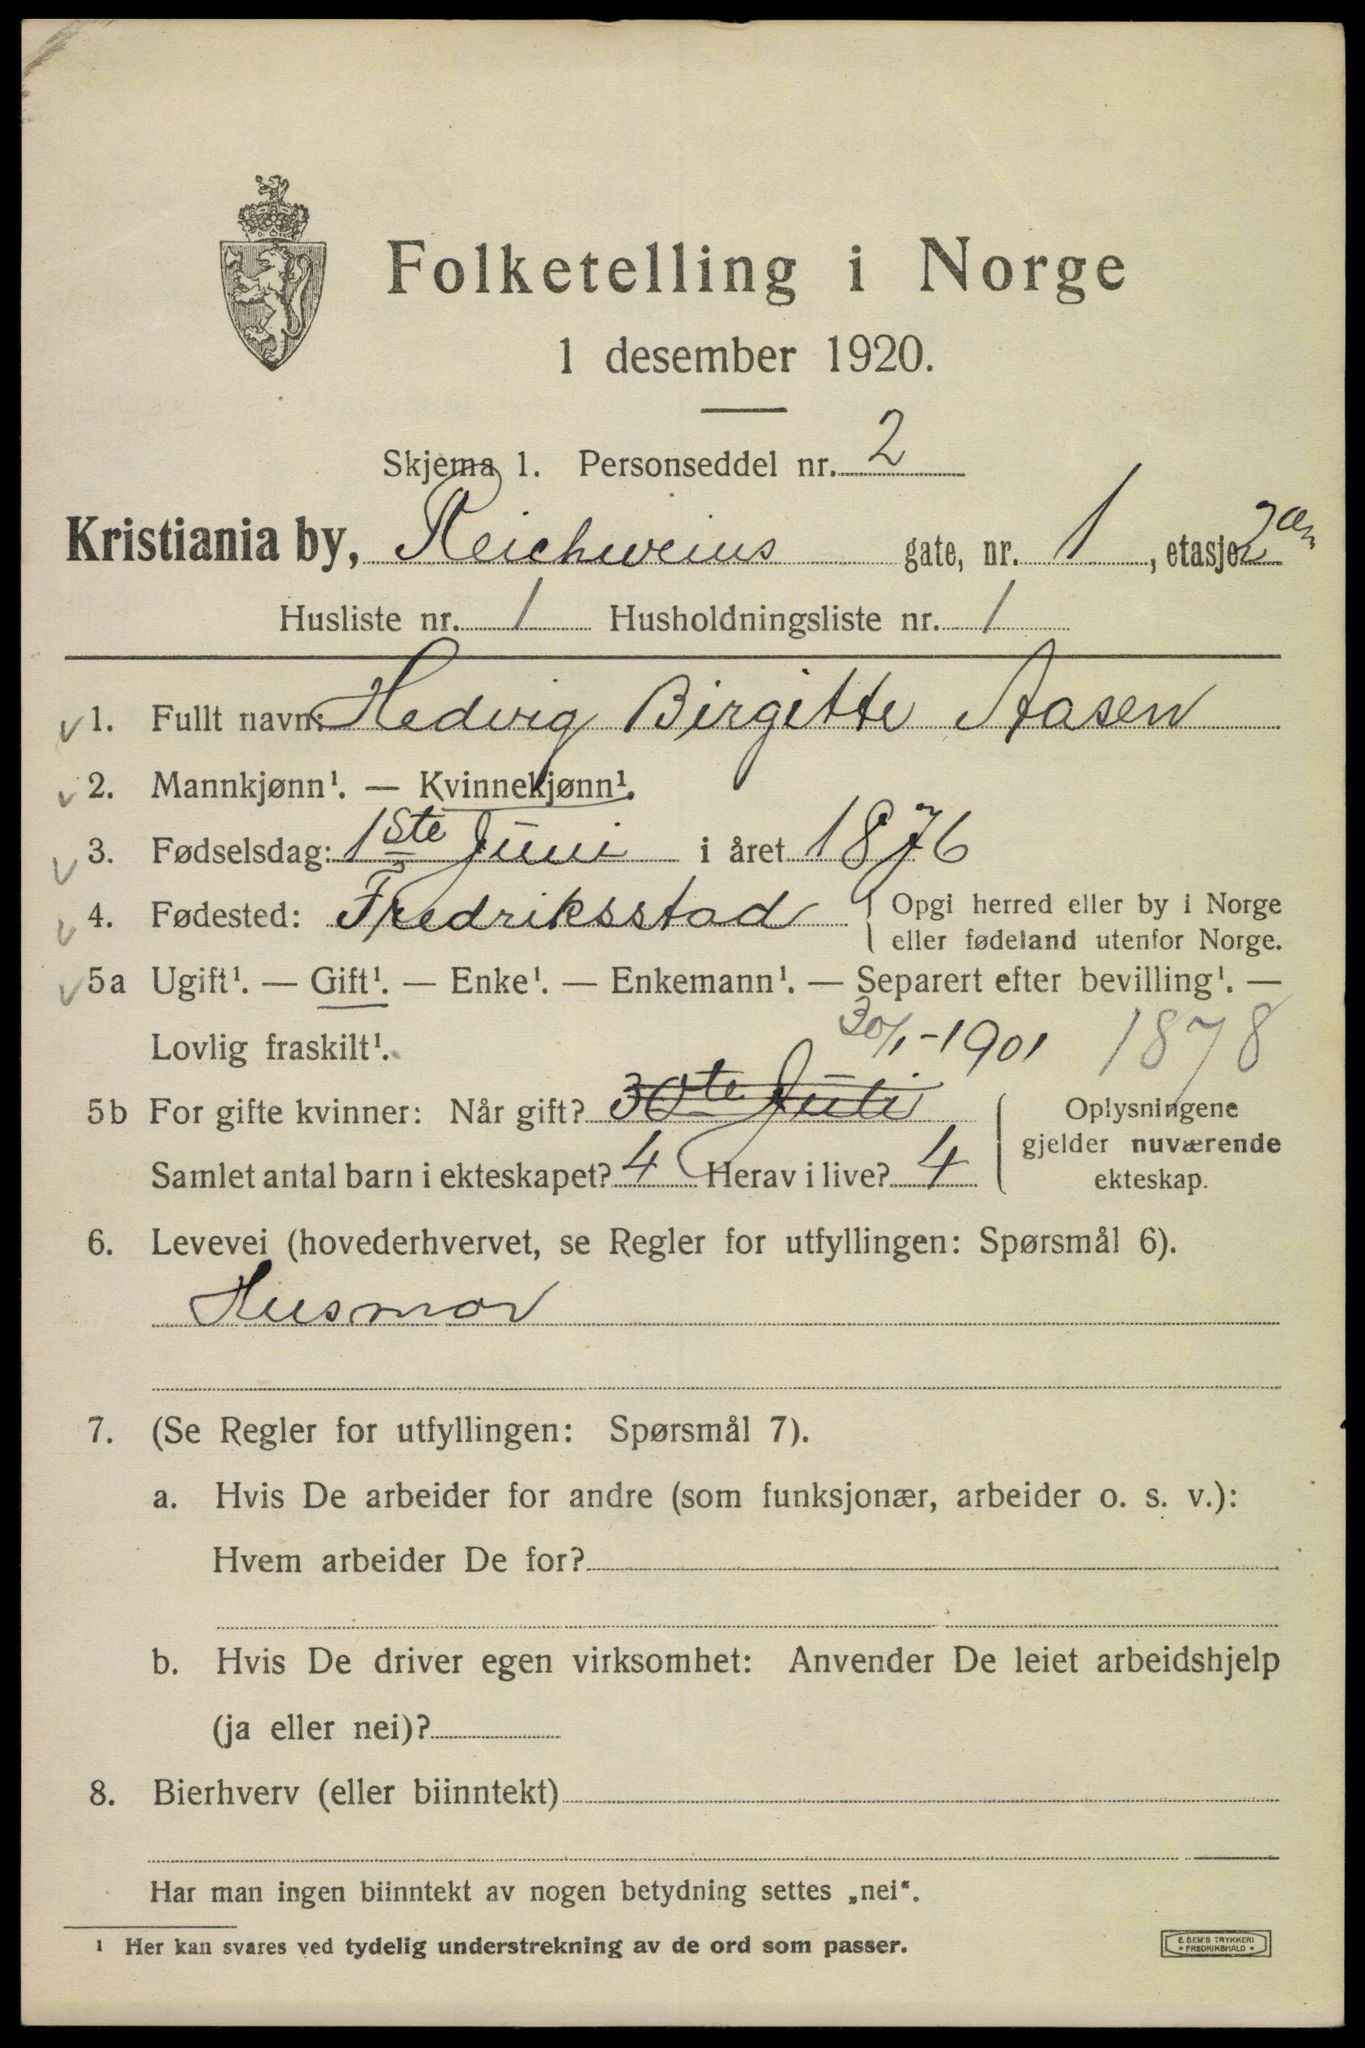 Folketelling i Norge
1 desember 1920.
Skjema 1. Personseddel nr. 2
Kristiania by, Reichweins gate, nr. 1, etasje 2
Husliste nr. 1 Husholdningsliste nr. 1
1. Fullt navn: Hedvig Birgitte Aasen
2. Mannkjønn¹. — Kvinnekjønn¹.
3. Fødselsdag: 1ste Juni i året 1876
4. Fødested: Fredriksstad { Opgi herred eller by i Norge
eller fødeland utenfor Norge.
5a Ugift¹. — Gift¹. — Enke¹. — Enkemann¹. — Separert efter bevilling¹. —
Lovlig fraskilt¹. 30/1-1901 1878
5b For gifte kvinner: Når gift? 30te Juli
Samlet antal barn i ekteskapet? 4 Herav i live? 4
Oplysningene
gjelder nuværende
ekteskap.
6. Levevei (hovederhvervet, se Regler for utfyllingen: Spørsmål 6).
Husmor
7. (Se Regler for utfyllingen: Spørsmål 7).
a. Hvis De arbeider for andre (som funksjonær, arbeider o. s. v.):
Hvem arbeider De for?
b. Hvis De driver egen virksomhet: Anvender De leiet arbeidshjelp
(ja eller nei)?
8. Bierhverv (eller biinntekt)
Har man ingen biinntekt av nogen betydning settes „nei“.
¹ Her kan svares ved tydelig understrekning av de ord som passer.
E. SEM'S TRYKKERI
• FREDRIKSHALD •